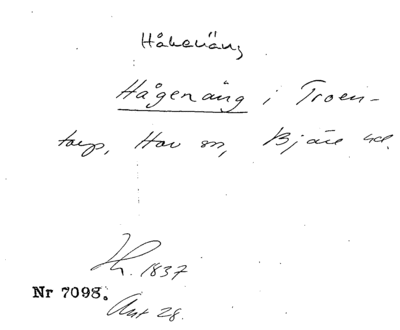 Håkenäng
Hågenäng i Troen-
torp, Hov sn, Bjäre hd.
Lh. 1837
Nr 7098.
Ant 28.